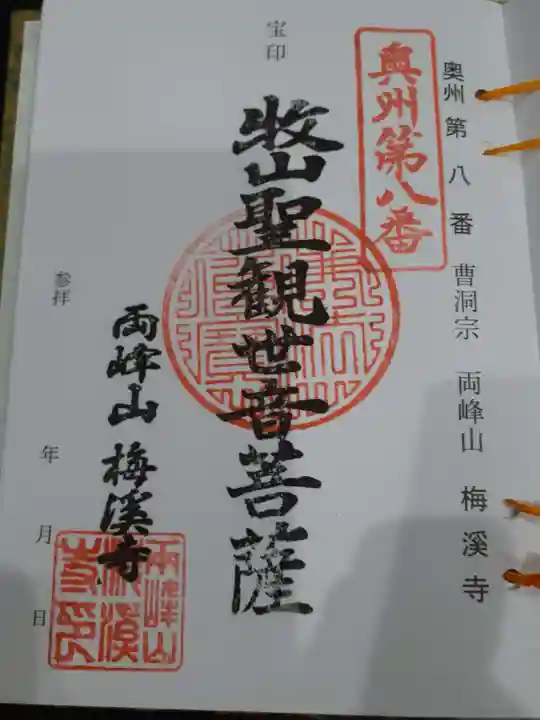 奥州第八番 曹洞宗 両峰山 梅溪寺
奥州第八番
宝印
牧山聖観世音菩薩
参拝
年 月 日
両峰山 梅溪寺
両峰山
梅溪
寺印